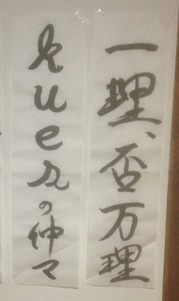 一理、否万理
kuesの仲々